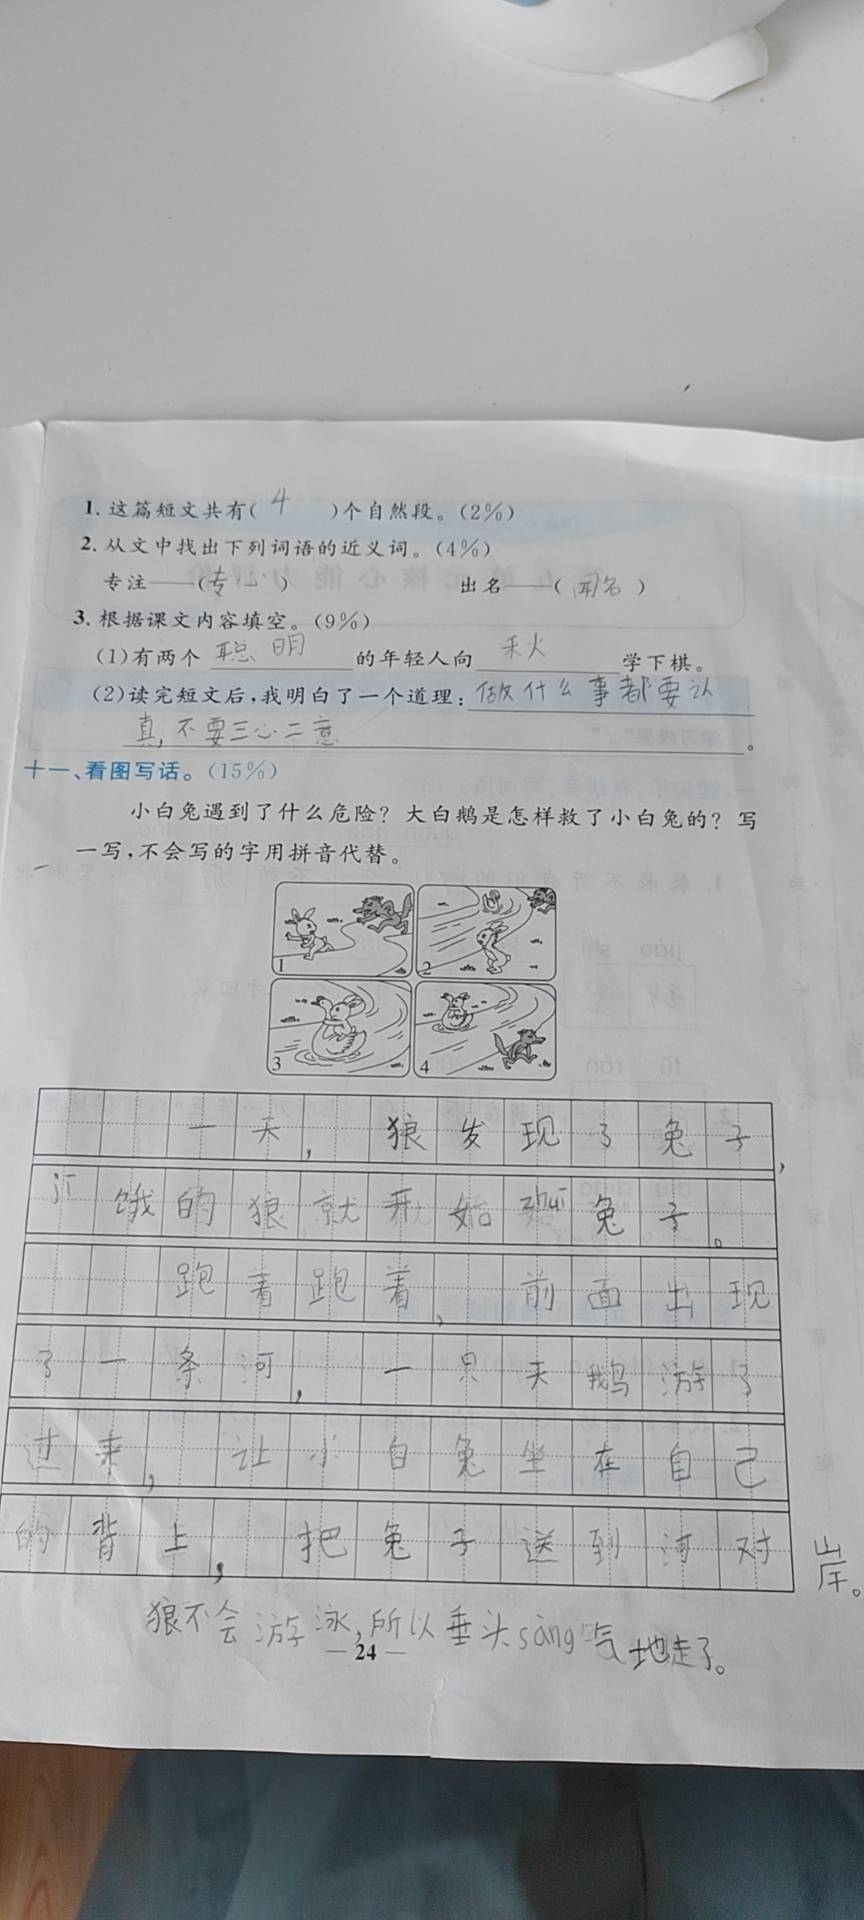 1. 这篇短文共有( 4 )个自然段。(2%)
2. 从文中找出下列词语的近义词。(4%)
专注——(专心) 出名——(闻名)
3. 根据课文内容填空。(9%)
(1)有两个 聪明 的年轻人向 秋 学下棋。
(2)读完短文后,我明白了一个道理: 做什么事都要认
真,不要三心二意 。
十一、看图写话。(15%)
小白兔遇到了什么危险? 大白鹅是怎样救了小白兔的? 写
一写,不会写的字用拼音代替。
1 2
3 4
一天,狼发现了兔子,
饿的狼就开始zhuī兔子。
跑着跑着,前面出现
了一条河,一只天鹅游了
过来,让小白兔坐在自己
的背上,把兔子送到河对岸。
狼不会游泳,所以垂头sàng气地走了。
— 24 —